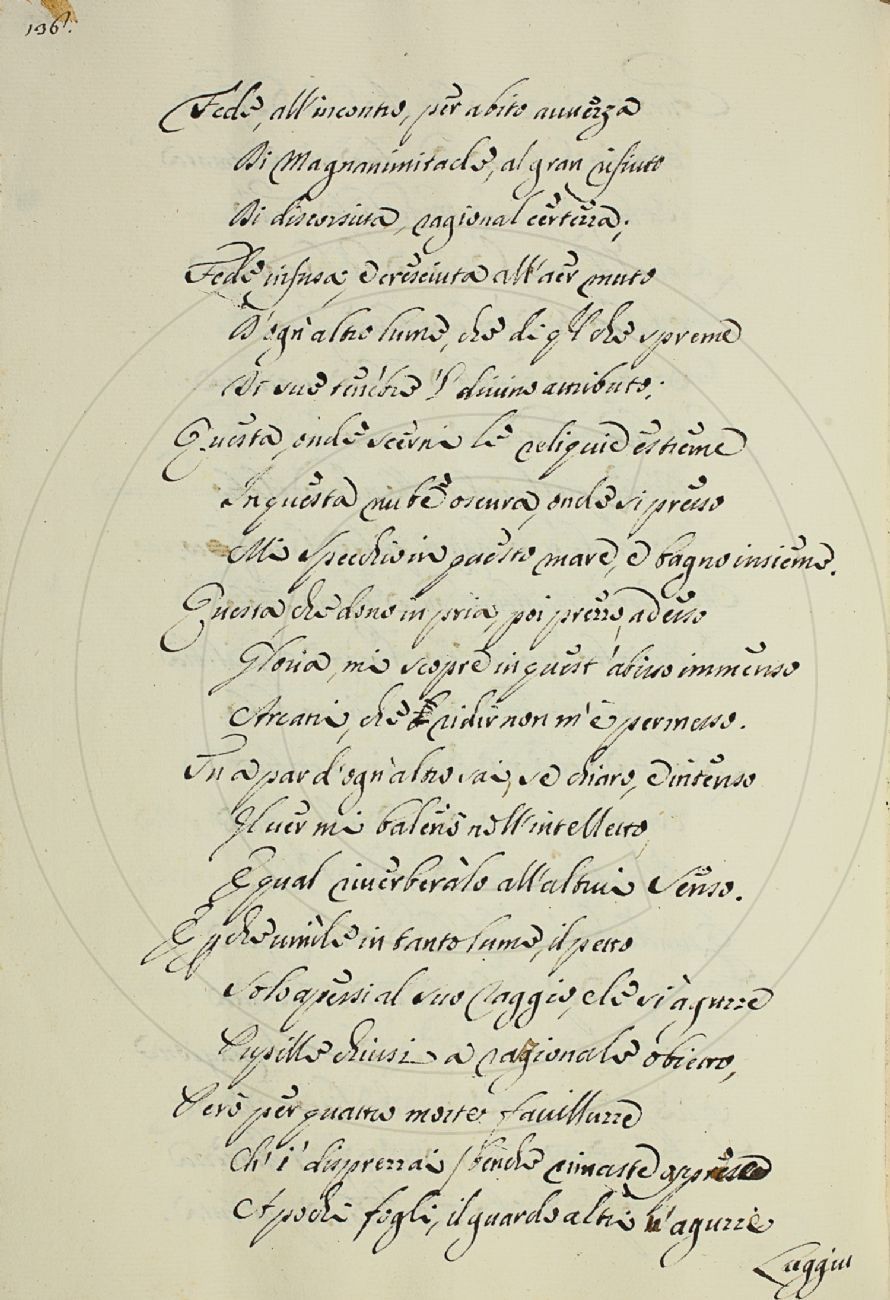 136.
Fede, all'incontro, per abito auuezza
Di Magnanimitade, al gran rifiuto
Di discorsiua, ragional certezza;
Fede, infusa, e cresciuta all'aer muto
D'ogn'altro lume, che di ql che spreme
Di sue tenebre 'l diuino attributo;
Questa, onde scerni le reliquie estreme
In questa nube oscura, onde si presso
Mi specchio in questo mare, e bagno insieme.
Questa, che dono in pria, poi prezzo, adesso
Gloria, mi scopre in quest'abisso immenso
Arcani, che ridir non m'è permesso.
In a par d'ogn'altro sai, se chiaro, e intenso
Il uer mi balenò nell'intelletto,
E qual riuerberàlo all'altrui senso.
E pche umìle in tanto lume, il petto
Solo apersi al suo raggio, e le sì aguzze
Pupille chiusi a ragionale obietto,
Però per quattro morte fauilluzze
Ch'i' disprezzai, benche rimaste oppresse
A pochi fogli, il guardo altri n'aguzze
Laggiu